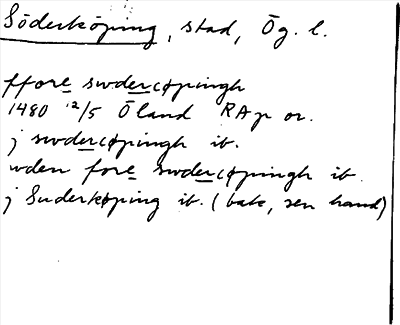 Söderköping, stad, Ög. l.
fforе swdercøpingh
1480 12/5 Öland RAp or.
j swdercøpingh ib.
wden fore swdercøpingh ib
j Suderkøping ib. (bake, sen hand)